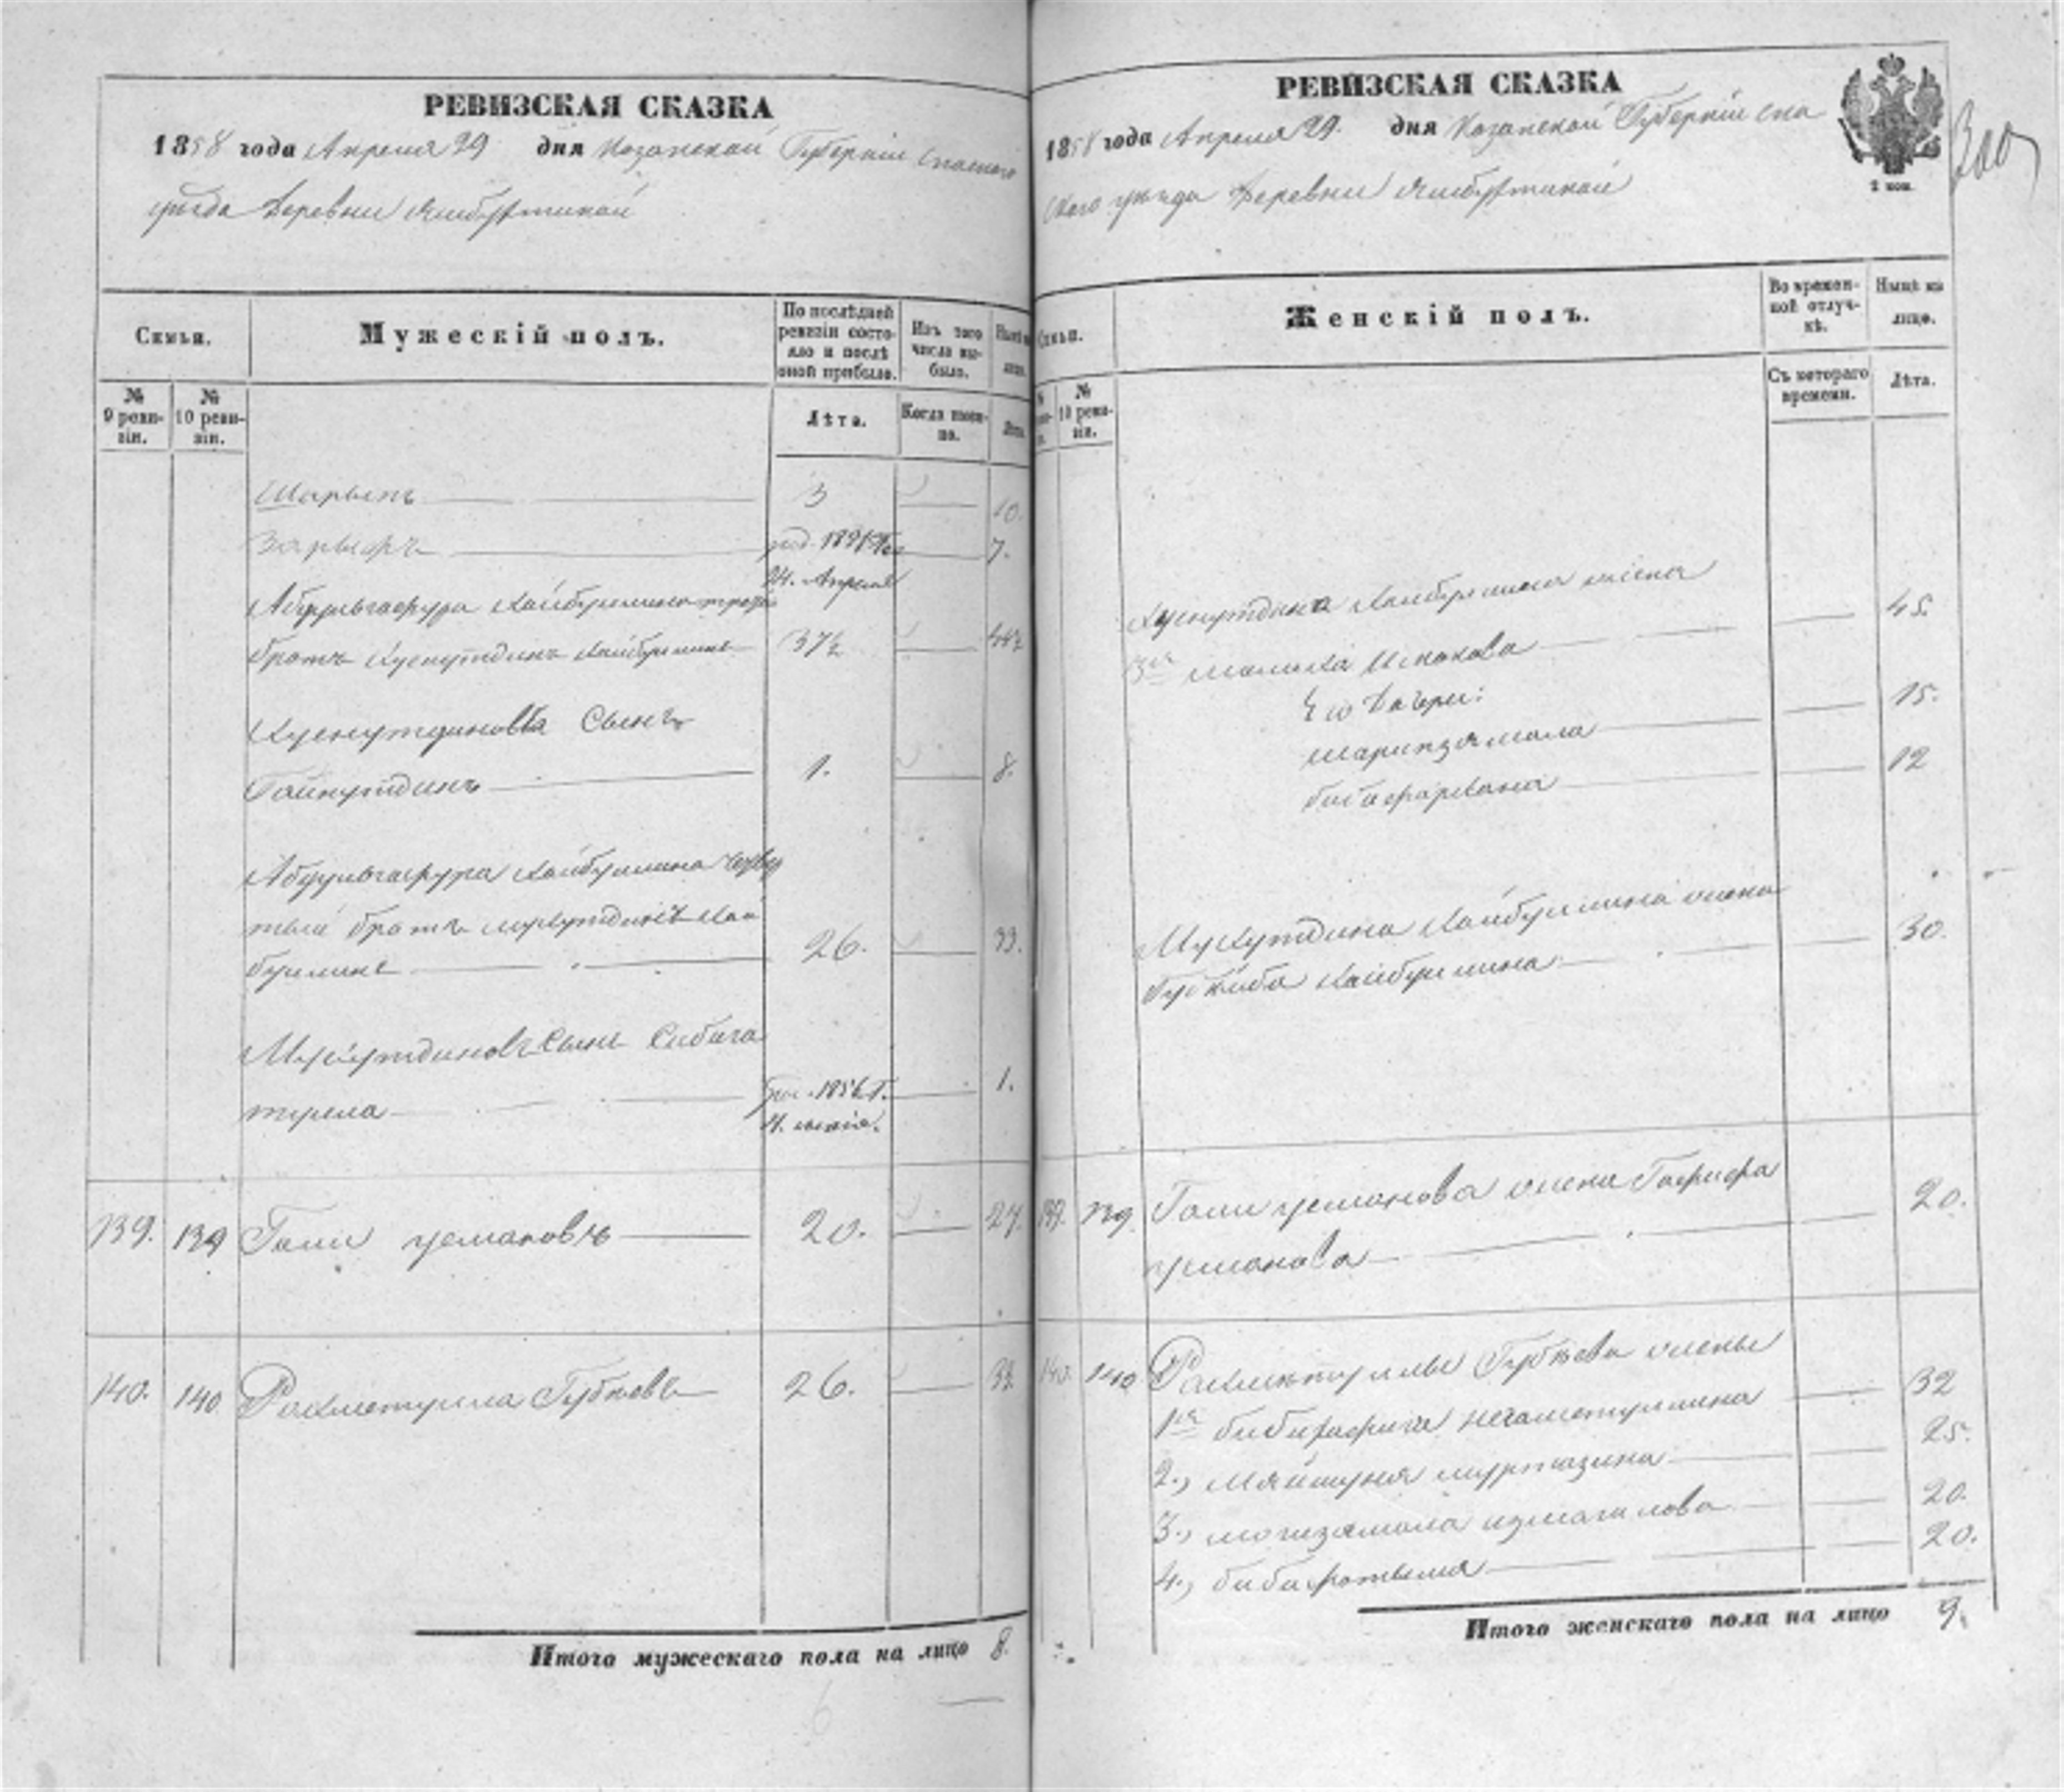 РЕВИЗСКАЯ СКАЗКА
1858 года Апреля 29 дня Казанской Губернiи Спаского
уезда деревни Ямбухтиной
Семья.
Мужескiй полъ.
По послѣдней ревизiи состояло и послѣ оной прибыло.
Изъ того числа выбыло.
Нынѣ на лицо.
№ 9 ревизiи.
№ 10 ревизiи.
Лѣта.
Когда именно.
Лѣта.
Шарыпъ 3 10.
Зарыфъ род. 1851 Го 7.
24. Апреля
Абдульгафура Хайбуллина
братъ Хуснутдинъ Хайбуллинъ 37½ 44½
Хуснутдиновъ Сынъ
Гайнутдинъ 1. 8.
Абдульгафура Хайбуллина четвер
тый братъ Мухутдинъ Хай
буллинъ 26. 33.
Мухутдиновъ Сынъ Сибага
тулла 1856 Г. 1.
139. 139 Гали Усмановъ 20. 27.
140. 140 Рахметулла Губѣевъ 26. 33.
Итого мужескаго пола на лицо 8.
РЕВИЗСКАЯ СКАЗКА
1858 года Апреля 29. дня Казанской Губернiи Спа
скаго уѣзда деревни Ямбухтиной
2 коп.
300
Семья.
Женскiй полъ.
Во временной отлучкѣ.
Нынѣ на лицо.
№ 10 ревизiи.
Съ котораго времени.
Лѣта.
Хуснутдина Хайбуллина жена 45.
Исхакова
Его дочери:
Шарипзямала 15.
Бибифархана 12
Мухутдина Хайбуллина жена
Хайбуллина 30.
139. 139. Гали Усманова жена Гафифа 20.
Усманова
140. 140 Рахметуллы Губѣева жены
1я Негаметуллина 32
2., Муртазина 25.
3., Измагилова 20.
4., Бибифатыма 20.
Итого женскаго пола на лицо 9.